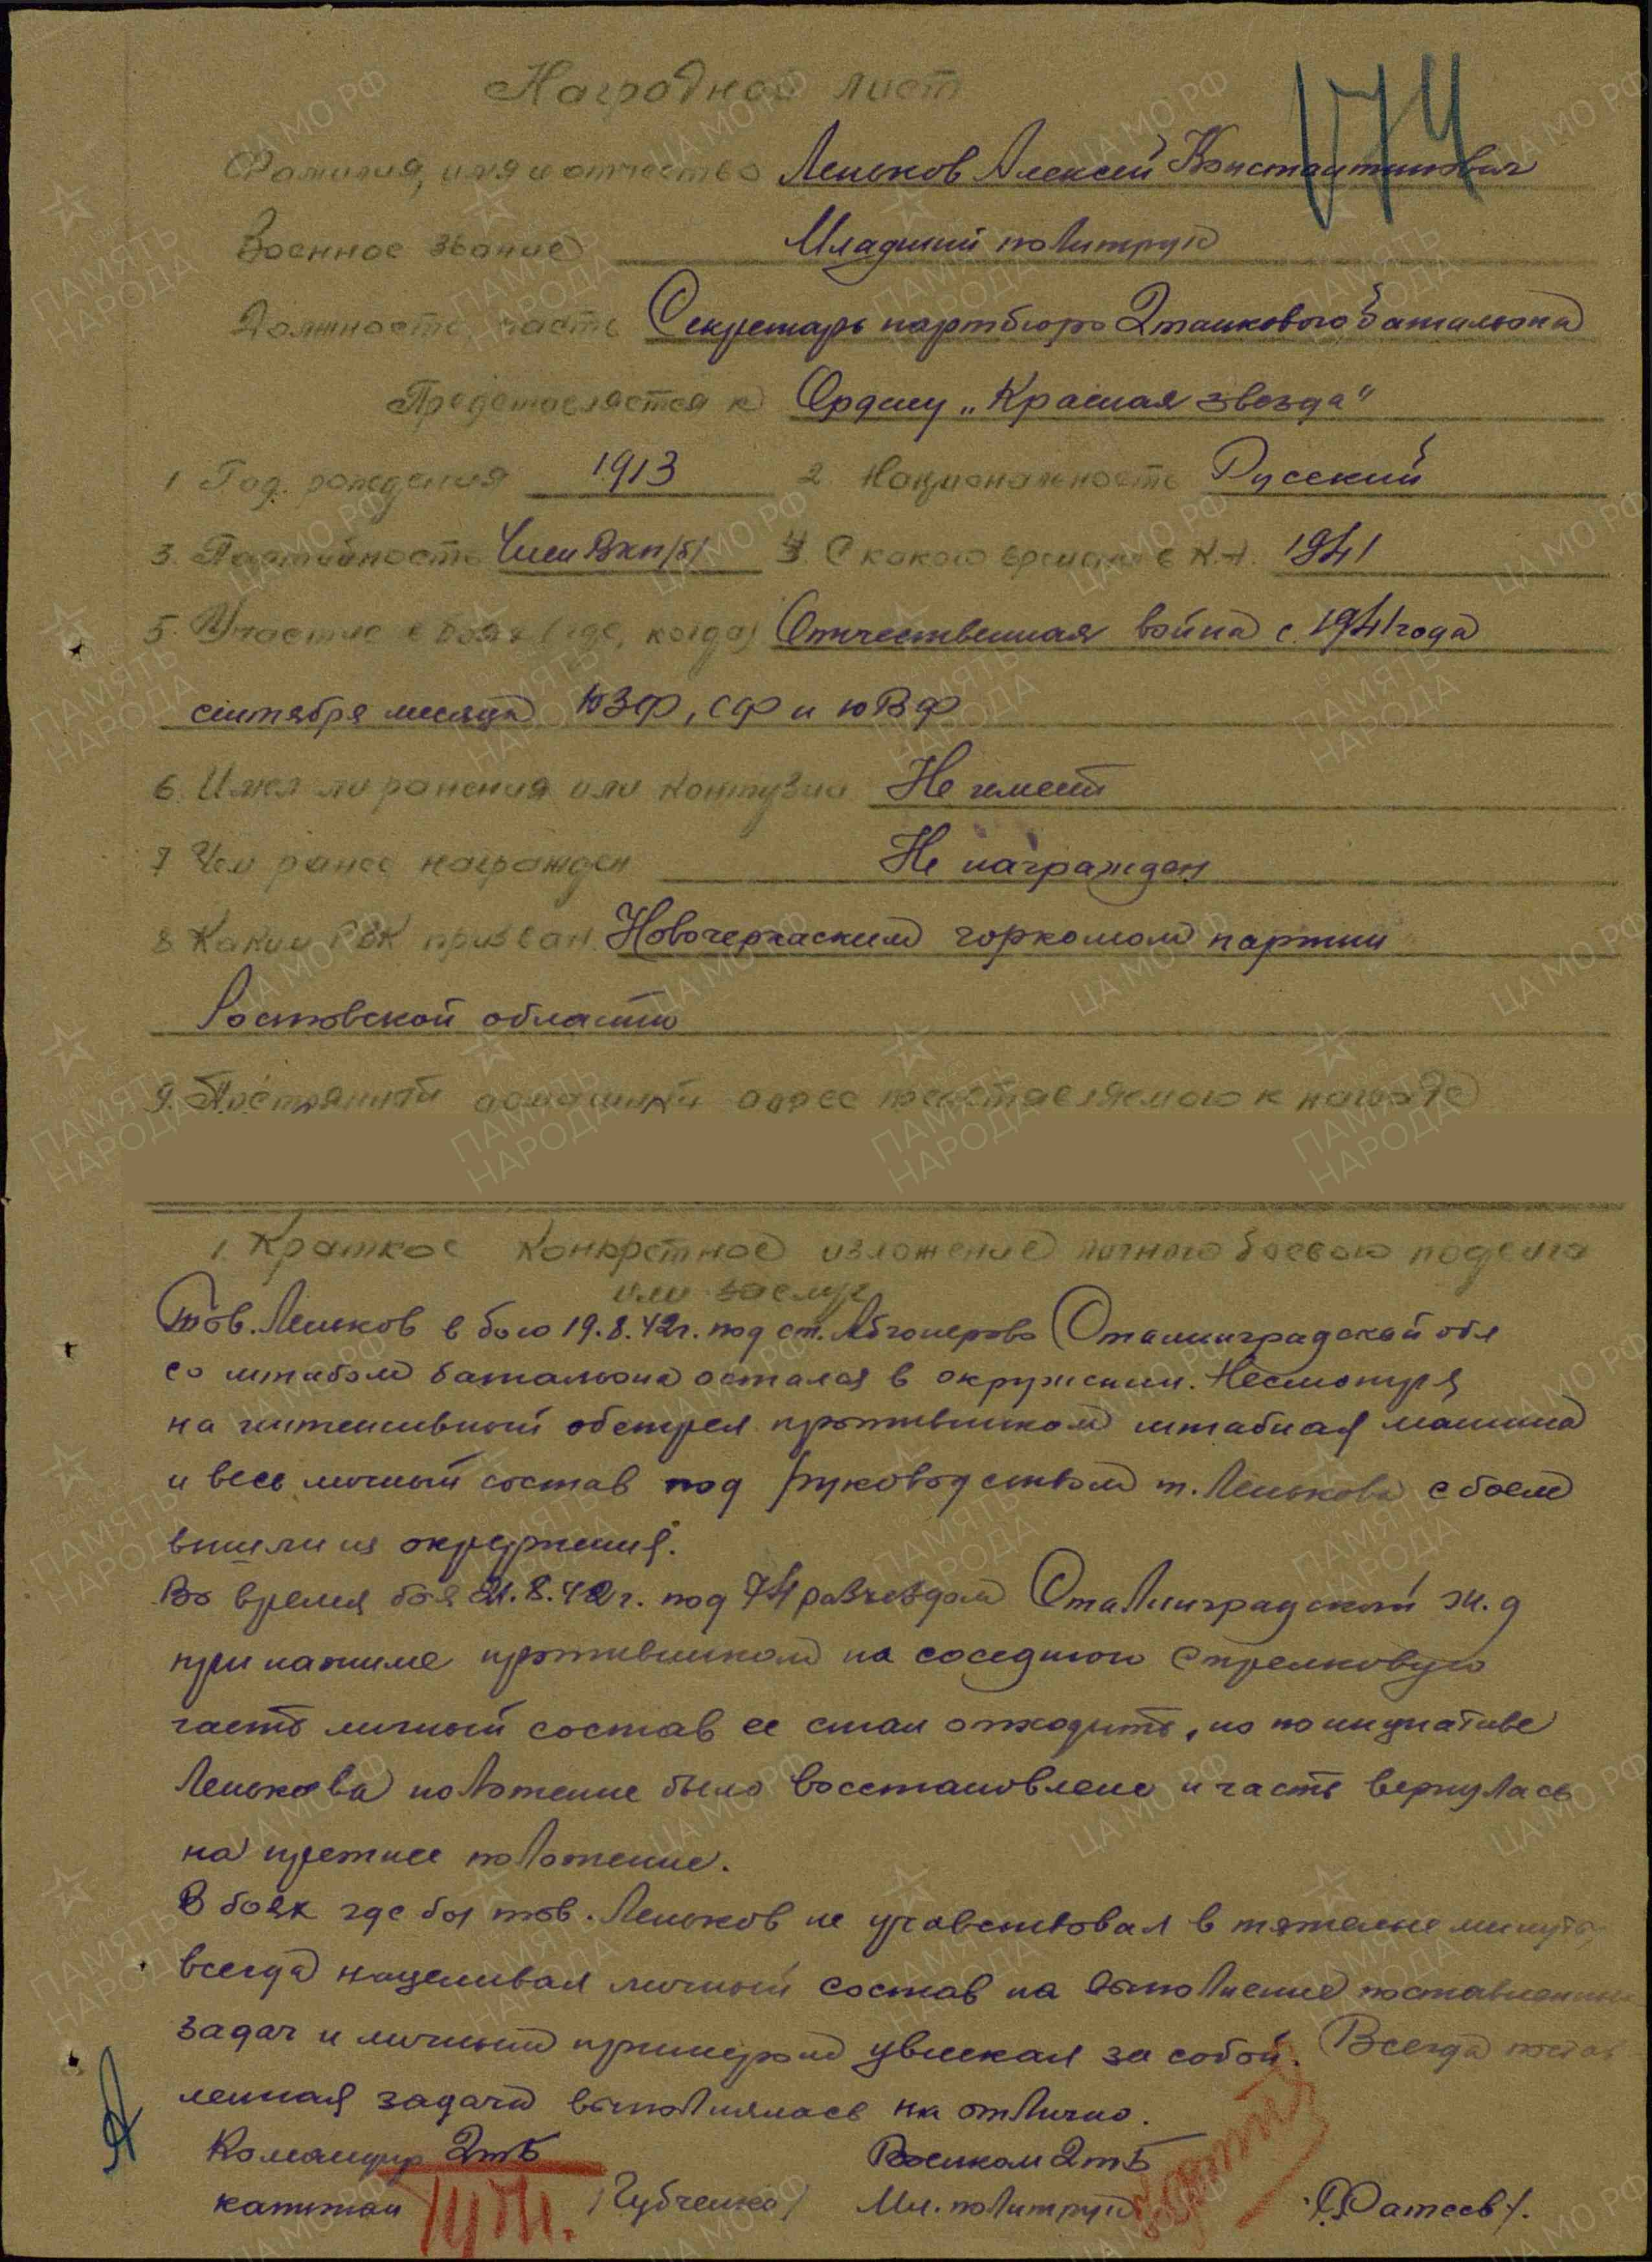 174
Наградной лист
Фамилия, имя и отчество Леньков Алексей Константинович
Военное звание Младший политрук
Должность, часть Секретарь партбюро 2 танкового батальона
Представляется к Ордену „Красная звезда"
1 Год рождения 1913 2. Национальность Русский
3. Партийность Член ВКП/б/ 4. С какого времени в К.А. 1941
5. Участие в боях (где, когда) Отечественная война с 1941 года
сентября месяца ЮЗФ, СФ и ЮВФ
6. Имел ли ранения или контузии Не имеет
7 Чем ранее награжден Не награжден
8 Каким РВК призван Новочеркаским горкомом партии
Ростовской области
9. Постоянный домашний адрес представляемого к награде
1. Краткое конкретное изложение личного боевого подвига
или заслуг
Тов. Леньков в бою 19.8.42г. под ст. Абгонерово Сталинградской обл
со штабом батальона остался в окружении. Несмотря
на интенсивный обстрел противником штабная машина
и весь личный состав под руководством т. Ленькова с боем
вышли из окружения.
Во время боя 21.8.42г. под 74 разъездом Сталинградской ж.д
при нажиме противником на соседнюю стрелковую
часть личный состав ее стал отходить, но по инциативе
Ленькова положение было восстановлено и часть вернулась
на прежнее положение.
В боях где был тов. Леньков не
в тяжелые минуты
всегда нацеливал личный состав на выполнение
задач и личным примером увлекал за собой. Всегда постав
ленная задача выполнялась на отлично.
Командир 2тб Военком 2тб
капитан /Губченко/ Мл. политрук /Фатеев/.